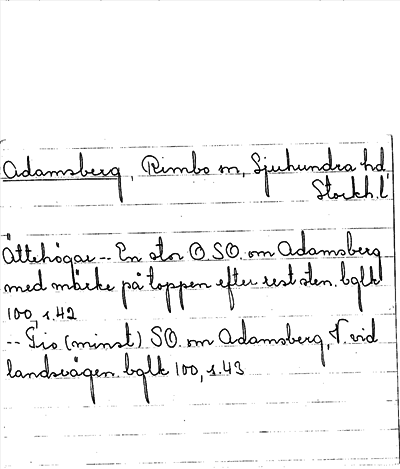 Adamsberg, Rimbo sn, Sjuhundra hd
Stockh.l
Ättehögar -- En stor O SO. om Adamsberg
med märke på toppen efter rest sten. bglk
100, s.42
-- Tio (minst) SO. om Adamsberg, V. vid
landsvägen. bglk 100, s.43